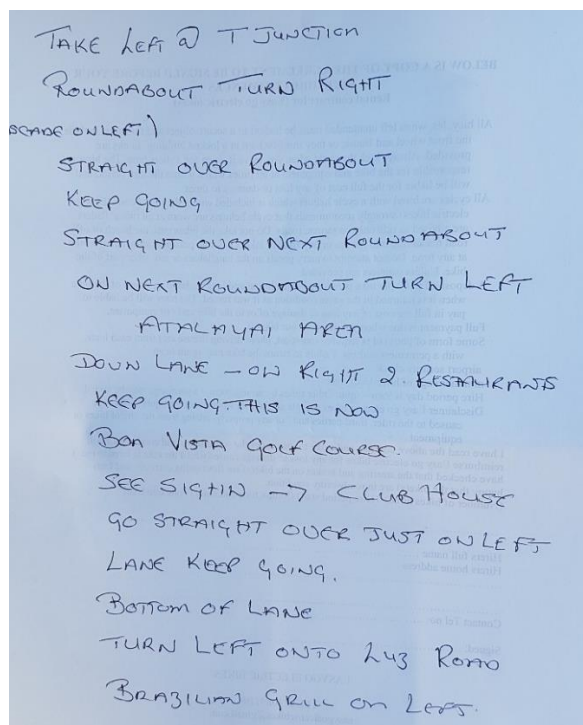 TAKE LEFT @ T JUNCTION
ROUNDABOUT TURN RIGHT
SCADE ON LEFT)
STRAIGHT OVER ROUNDABOUT
KEEP GOING
STRAIGHT OVER NEXT ROUNDABOUT
ON NEXT ROUNDABOUT TURN LEFT
ATALAYAI AREA
DOWN LANE - ON RIGHT 2. RESTAURANTS
KEEP GOING. THIS IS NOW
BOA VISTA GOLF COURSE.
SEE SIGHIN → CLUB HOUSE
GO STRAIGHT OVER JUST ON LEFT
LANE KEEP GOING.
BOTTOM OF LANE
TURN LEFT ONTO LUZ ROAD
BRAZILIAN GRILL ON LEFT.